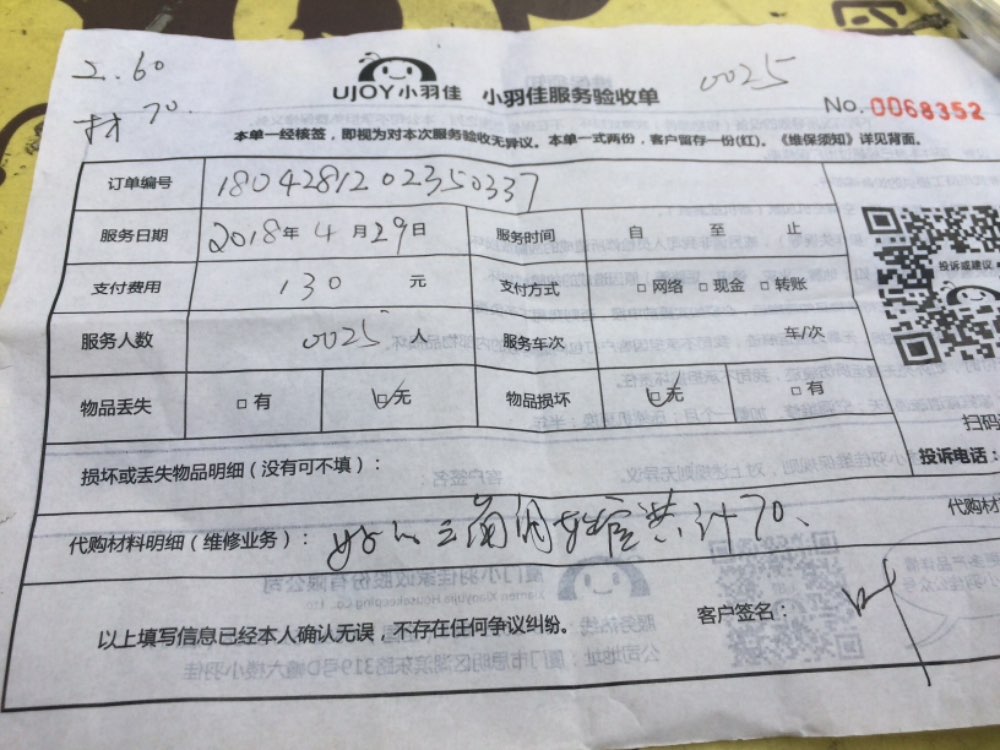 2.60
材 70.
UJOY小羽佳 小羽佳服务验收单
0025
No.0068352
本单一经核签，即视为对本次服务验收无异议。本单一式两份，客户留存一份(红)。《维保须知》详见背面。
订单编号 1804281202350337
服务日期 2018年 4 月29日 服务时间 自 至 止
支付费用 130 元 支付方式 □网络 □现金 □转账
服务人数 0025 人 服务车次 车/次
物品丢失 □有 □无 物品损坏 □无 □有
投诉或建议
扫码
投诉电话：
损坏或丢失物品明细（没有可不填）：
代购材料明细（维修业务）： 三角阀 共计70.
代购材
以上填写信息已经本人确认无误，不存在任何争议纠纷。
客户签名： 叶